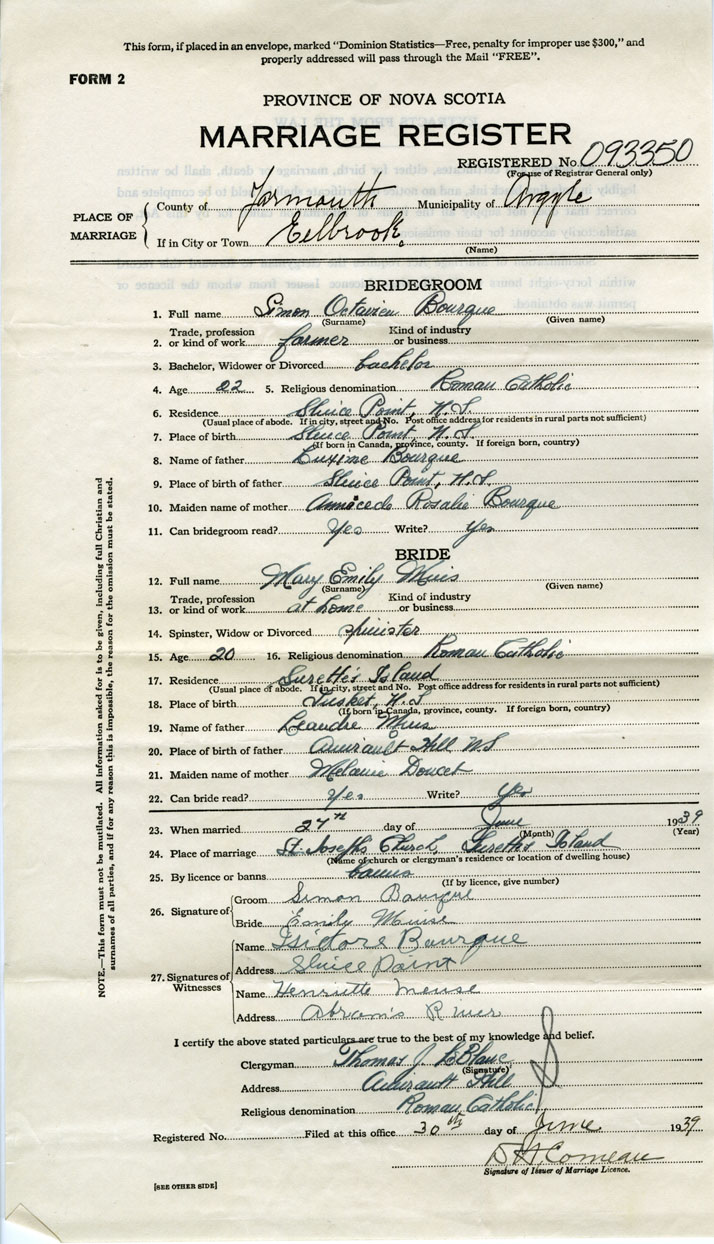 This form, if placed in an envelope, marked "Dominion Statistics—Free, penalty for improper use $300," and
properly addressed will pass through the Mail "FREE".
FORM 2
PROVINCE OF NOVA SCOTIA
MARRIAGE REGISTER
REGISTERED No. 093350
(For use of Registrar General only)
PLACE OF MARRIAGE
County of Yarmouth Municipality of Argyle
If in City or Town Eelbrook.
(Name)
BRIDEGROOM
1. Full name Simon Octavien Bourque
(Surname) (Given name)
2. Trade, profession or kind of work farmer Kind of industry or business
3. Bachelor, Widower or Divorced bachelor
4. Age 22 5. Religious denomination Roman Catholic
6. Residence Sluice Point, N.S.
(Usual place of abode. If in city, street and No. Post office address for residents in rural parts not sufficient)
7. Place of birth Sluice Point, N.S.
(If born in Canada, province, county. If foreign born, country)
8. Name of father Luxime Bourque
9. Place of birth of father Sluice Point, N.S.
10. Maiden name of mother Rosalie Bourque
11. Can bridegroom read? Yes Write? Yes
BRIDE
12. Full name Mary Emily Muis
(Surname) (Given name)
13. Trade, profession or kind of work at home Kind of industry or business
14. Spinster, Widow or Divorced spinster
15. Age 20 16. Religious denomination Roman Catholic
17. Residence Surette's Island
(Usual place of abode. If in city, street and No. Post office address for residents in rural parts not sufficient)
18. Place of birth Tusket, N.S.
(If born in Canada, province, county. If foreign born, country)
19. Name of father Leandre Muis
20. Place of birth of father Amirault Hill N.S
21. Maiden name of mother Melanie Doucet
22. Can bride read? Yes Write? Yes
23. When married 27th day of June 1939
(Month) (Year)
24. Place of marriage St. Joseph's Church, Surette's Island
(Name of church or clergyman's residence or location of dwelling house)
25. By licence or banns banns
(If by licence, give number)
26. Signature of
Groom Simon Bourque
Bride Emily Muise
27. Signatures of Witnesses
Name Isidore Bourque
Address Sluice Point
Name Henriette Meuse
Address Abram's River
I certify the above stated particulars are true to the best of my knowledge and belief.
Clergyman Thomas J. LeBlanc
(Signature)
Address Amirault Hill
Religious denomination Roman Catholic
Registered No. Filed at this office 30th day of June 1939
D. H. Comeau
Signature of Issuer of Marriage Licence.
[SEE OTHER SIDE]
NOTE.—This form must not be mutilated. All information asked for is to be given, including full Christian and
surnames of all parties, and if for any reason this is impossible, the reason for the omission must be stated.